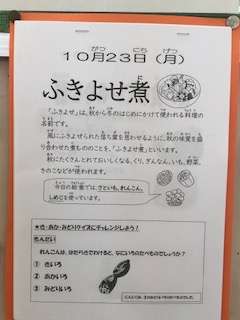 10月23日（月）
ふきよせ煮
「ふきよせ」は、秋から冬のはじめにかけて使われる料理の
名前です。
風にふきよせられた落ち葉を思わせるように、秋の味覚を盛
り合わせた煮もののことを、「ふきよせ煮」といいます。
秋にたくさんとれておいしくなる、くり、ぎんなん、いも、野菜、
きのこなどが使われます。
今日の給食では、さといも、れんこん、
しめじを使っています。
★き・あか・みどりクイズにチャレンジしよう！
もんだい
れんこんは、はたらきでわけると、なにいろのたべものでしょうか？
① きいろ
② あかいろ
③ みどりいろ